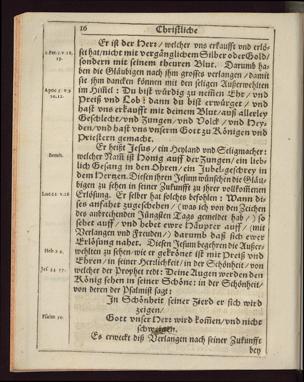 16 Christliche
Er ist der HErr/ welcher vns erkaufft vnd erlö-
1.Pet.1.v.18, 19. set hat/nicht mit vergänglichem Silber oder Gold/
sondern mit seinem theuren Blut. Darumb ha-
ben die Gläubigen nach jhm grosses verlangen/damit
sie jhm dancken können mit den seligen Außerwehlten
Apoc 5. v.9 10.12. im Himel: Du bist würdig zu nemen Ehr/ vnd
Preiß vnd Lob: dann du bist erwürget / vnd
hast vns erkaufft mit deinem Blut/auß allerley
Geschlecht/vnd Zungen/ vnd Volck / vnd Hey-
den/vnd hast vns vnserm Gott zu Königen vnd
Priestern gemacht.
Er heißt Jesus / ein Heyland vnd Seligmacher:
Bernh. welcher Nam ist Honig auff der Zungen/ ein lieb-
lich Gesang in den Ohren / ein Jubelgeschrey in
dem Hertzen. Diesen jhren Jesum wünschen die Gläu-
bigen zu sehen in seiner Zukunfft zu jhrer vollkomenen
Luc.21 v.28 Erlösung. Er selber hat solches befohlen: Wann di-
ses anfahet zugeschehen / (was ich von den Zeichen
des anbrechenden Jüngsten Tags gemeldet hab /) so
sehet auff / vnd hebet ewre Häupter auff/ (mit
Verlangen vnd Freuden/) darumb daß sich ewre
Erlösung nahet. Diesen Jesum begehren die Außer-
Heb 2.9. wehlten zu sehen/wie er gekrönet ist mit Preiß vnd
Ehren/ in seiner Herrlichkeit/ in der Schönheit/ von
Jes. 33. 17. welcher der Prophet redt: Deine Augen werden den
König sehen in seiner Schöne: in der Schönheit/
von deren der Psalmist sagt:
In Schönheit seiner Zierd er sich wird
zeigen/
Psalm 50. Gott vnser HErr wird kommen/vnd nicht
schweigen.
Es erweckt diß Verlangen nach seiner Zukunfft
bey